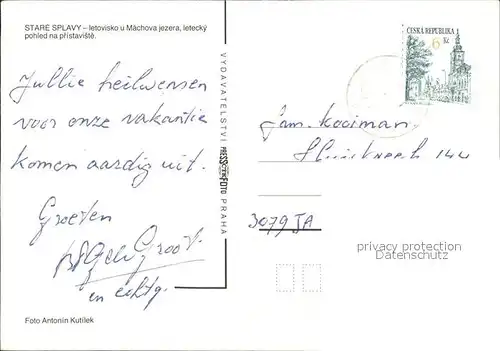 STARÉ SPLAVY – letovisko u Máchova jezera, letecký
pohled na přístaviště.
Jullie heilwensen
voor onze vakantie
komen aardig uit.
Groeten
Groot.
en echtg.
Foto Antonín Kutílek
VYDAVATELSTVÍ PRESSFOTO PRAHA
ČESKÁ REPUBLIKA
6 Kč
Fam. Kooiman
144
3079 JA
privacy protection
Datenschutz